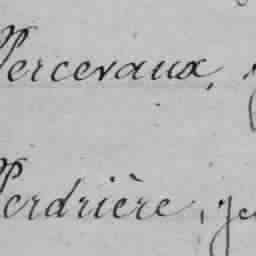 Percevaux,
Perdrière,